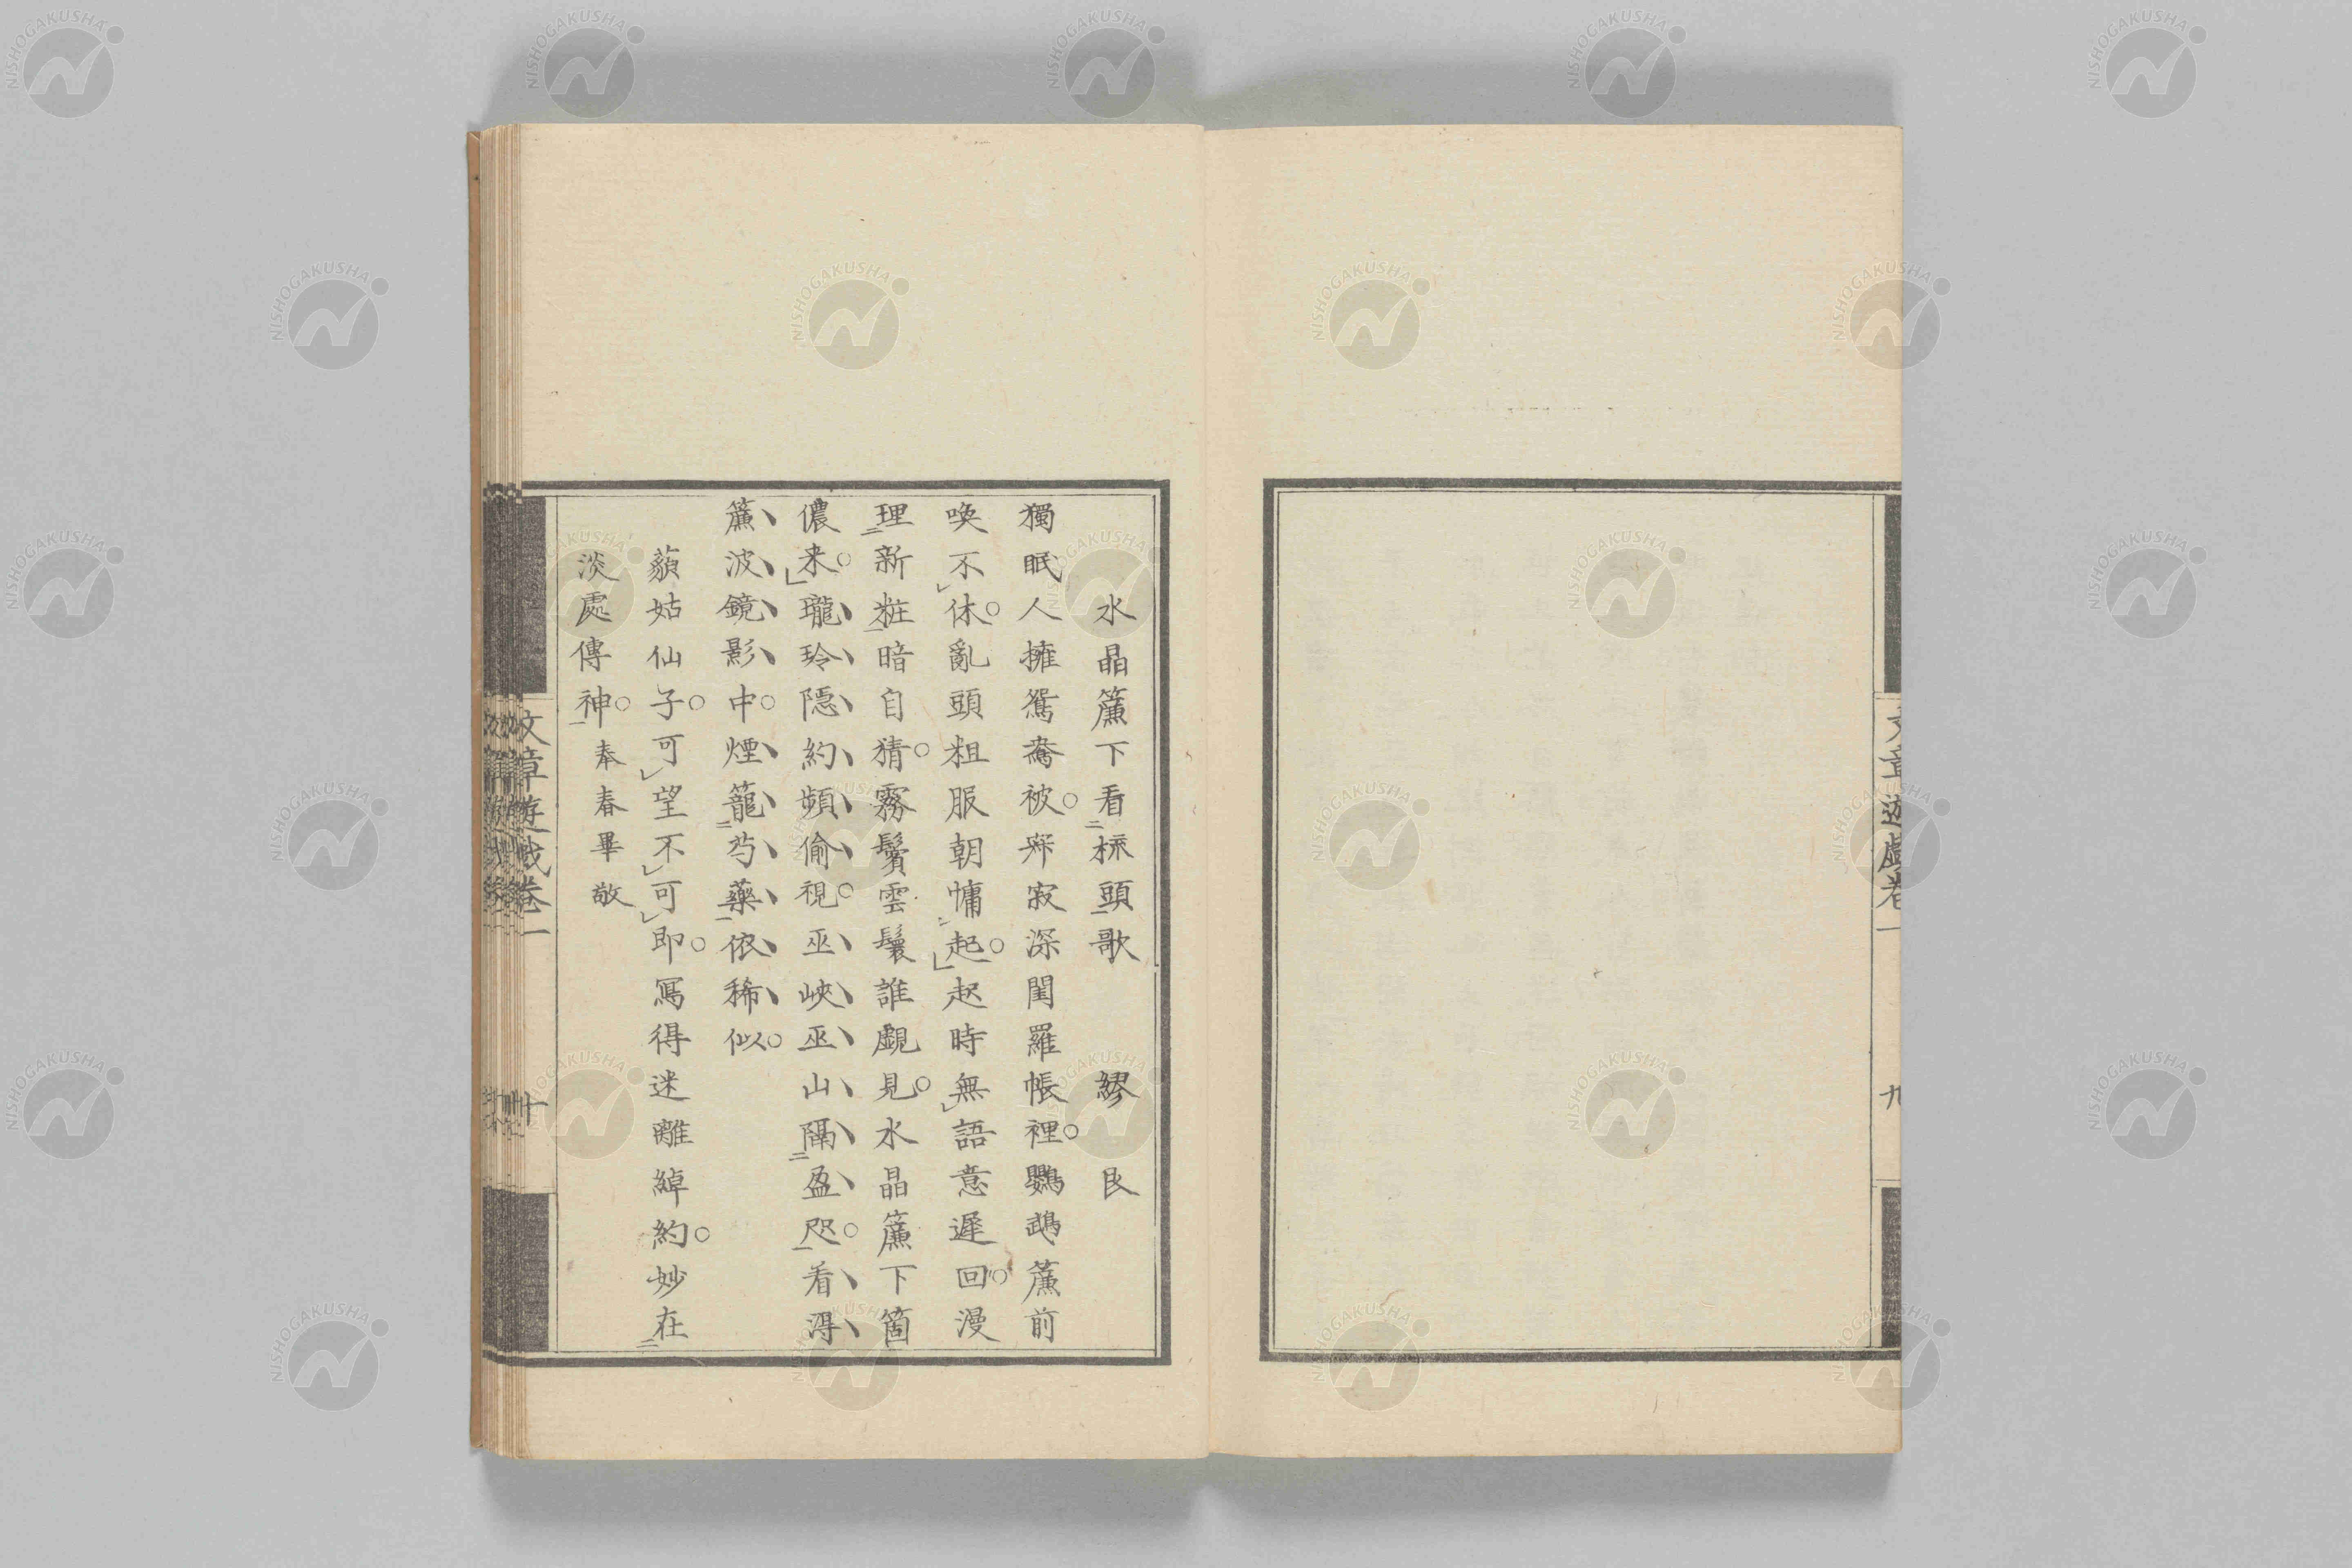 文章遊戲卷一
九
水晶簾下看梳頭歌 繆艮
獨眠人擁鴛鴦被。寂深閨羅帳裡。鸚鵡簾前
喚不休。亂頭粗服朝慵起。起時無語意遲回。漫
理新粧暗自猜。霧鬢雲鬟誰覷見。水晶簾下箇
儂来。瓏玲隱約頻偷視。巫峽巫山隔盈咫。看得
簾波鏡影中。煙籠芍藥依稀似。
藐姑仙子。可望不可即。寫得迷離綽約。妙在
淡處傳神。奉春畢敬
文章遊戲卷一
十
NISHOGAKUSHA